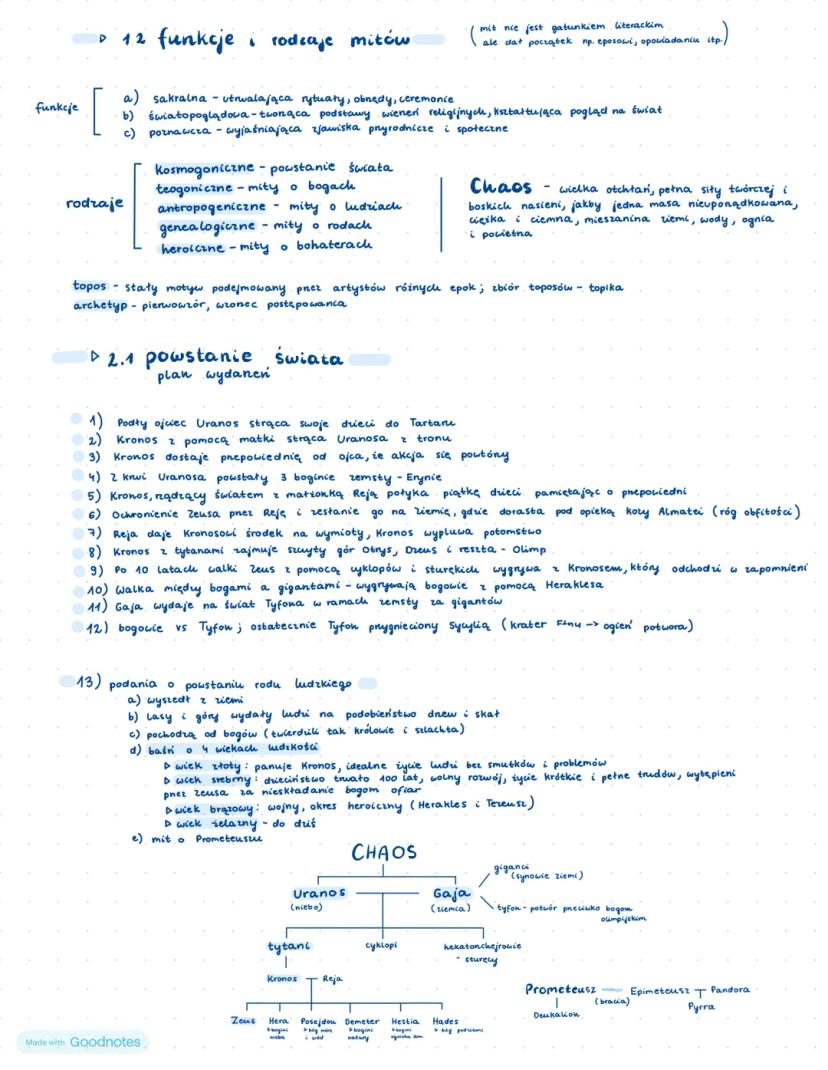 1 2 funkcje i rodzaje mitów
(mit nie jest gatunkiem literackim
ale dał początek np. eposowi, opowiadaniu itp.)
funkcje
a) sakralna - utrwalająca rytuały, obrzędy, ceremonie
b) światopoglądowa - tworząca podstawy wierzeń religijnych, kształtująca pogląd na świat
c) poznawcza - wyjaśniająca zjawiska przyrodnicze i społeczne
rodzaje
kosmogoniczne - powstanie świata
teogoniczne - mity o bogach
antropogeniczne - mity o ludziach
genealogiczne - mity o rodach
heroiczne - mity o bohaterach
Chaos - wielka otchłań, pełna siły twórczej i
boskich nasieni, jakby jedna masa nieuporządkowana,
ciężka i ciemna, mieszanina ziemi, wody, ognia
i powietrza
topos - stały motyw podejmowany przez artystów różnych epok; zbiór toposów - topika
archetyp - pierwowzór, wzorzec postępowania
2.1 powstanie świata
plan wydarzeń
1) Podły ojciec Uranos strąca swoje dzieci do Tartaru
2) Kronos z pomocą matki strąca Uranosa z tronu
3) Kronos dostaje przepowiednię od ojca, że akcja się powtórzy
4) Z krwi Uranosa powstały 3 boginie zemsty - Erynie
5) Kronos, rządzący światem z małżonką Reją połyka piątkę dzieci pamiętając o przepowiedni
6) Ochronienie Zeusa przez Reję i zesłanie go na ziemię, gdzie dorasta pod opieką kozy Almatei (róg obfitości)
7) Reja daje Kronosowi środek na wymioty, Kronos wypluwa potomstwo
8) Kronos z tytanami zajmuje szczyty gór Otrys, Dzeus i reszta - Olimp
9) Po 10 latach walki Zeus z pomocą cyklopów i sturękich wygrywa z Kronosem, który odchodzi w zapomnieni
10) Walka między bogami a gigantami - wygrywają bogowie z pomocą Heraklesa
11) Gaja wydaje na świat Tyfona w ramach zemsty za gigantów
12) bogowie vs Tyfon; ostatecznie Tyfon przygnieciony Sycylią (krater Etny -> ogień potwora)
13) podania o powstaniu rodu ludzkiego
a) wyszedł z ziemi
b) lasy i góry wydały ludzi na podobieństwo drzew i skał
c) pochodzą od bogów (twierdzili tak królowie i szlachta)
d) baśń o 4 wiekach ludzkości
wiek złoty: panuje Kronos, idealne życie ludzi bez smutków i problemów
wiek srebrny: dzieciństwo trwało 100 lat, wolny rozwój, życie krótkie i pełne trudów, wytępieni
przez Zeusa za nieskładanie bogom ofiar
wiek brązowy: wojny, okres heroiczny (Herakles i Tezeusz)
wiek żelazny - do dziś
e) mit o Prometeuszu
CHAOS
giganci
(synowie ziemi)
Uranos
(niebo)
Gaja
(ziemia)
tyfon - potwór przeciwko bogom
olimpijskim
tytani
cyklopi
hekatonchejrowie
- sturęcy
Kronos
Reja
Prometeusz
(bracia)
Epimeteusz
Pandora
Deukalion
Pyrra
Zeus
Hera
bogini
nieba
Posejdon
bóg mórz
i wód
Demeter
bogini
natury
Hestia
bogini
ogniska dom.
Hades
bóg podziemi
Made with Goodnotes